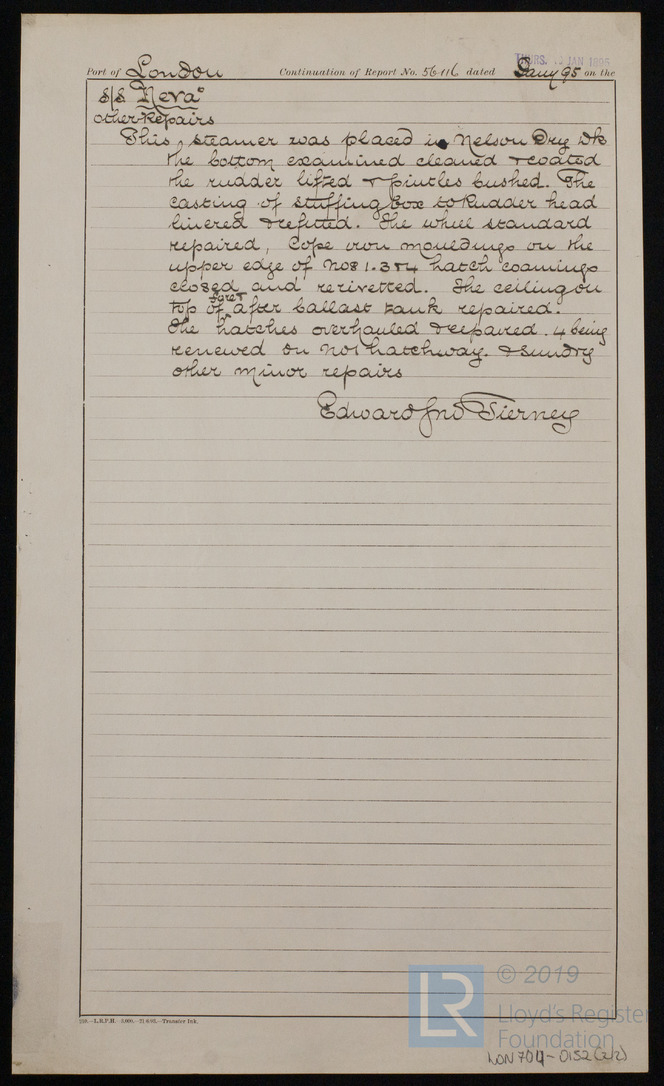 Port of London Continuation of Report No. 56416 dated Jany 95 on the
THURS. JAN 1895
S/S "Neva"
Other Repairs
This steamer was placed in Nelson Dry Dk
the bottom examined cleaned & coated
the rudder lifted & pintles bushed. The
casting of stuffing box to Rudder head
linered & refitted. The wheel standard
repaired, Cope iron mouldings on the
upper edge of Nos 1. 3 & 4 hatch coamings
closed and reriveted. The ceiling on
top of fore & after ballast tank repaired.
The hatches overhauled & repaired. 4 being
renewed on No 1 hatchway. & sundry
other minor repairs
Edward Jno Tierney
L.R.P.H.—3,000.—Transfer Ink.
LR © 2019
Lloyd's Register
Foundation
LON 704-0152 (2/2)